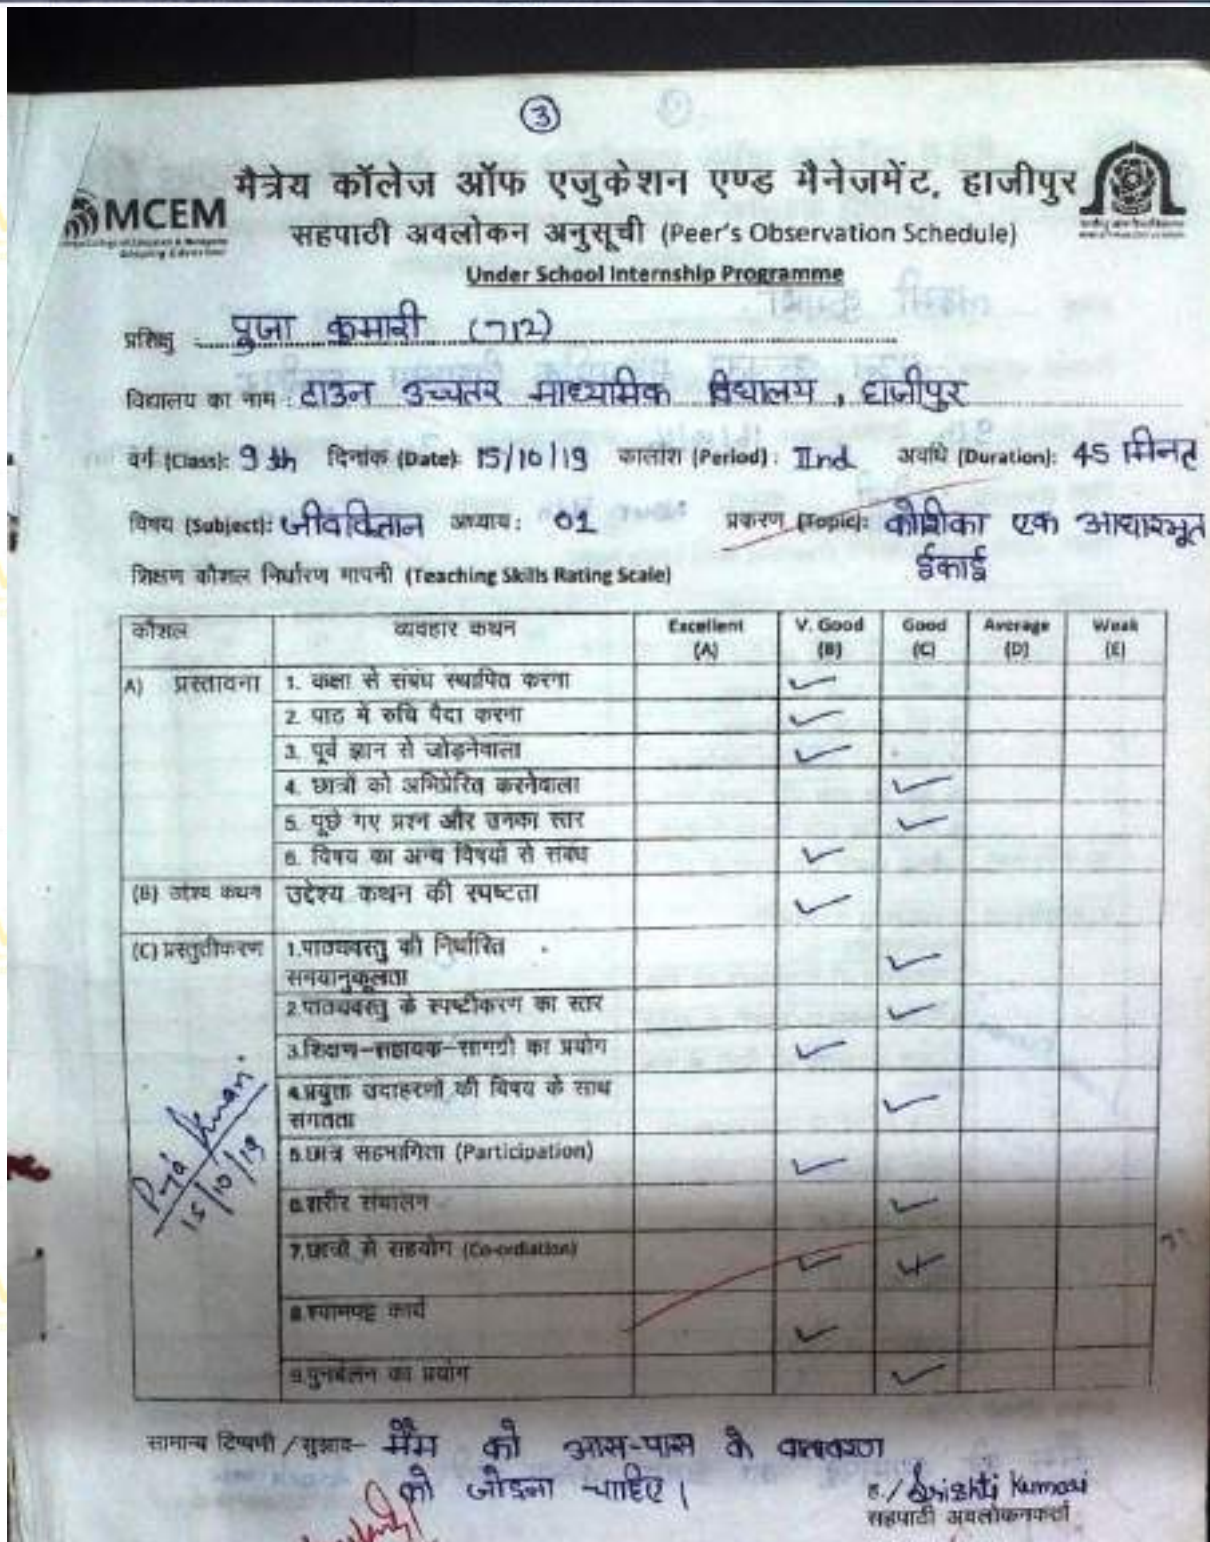 ③
MCEM
मैत्रेय कॉलेज ऑफ एजुकेशन एण्ड मैनेजमेंट, हाजीपुर
सहपाठी अवलोकन अनुसूची (Peer's Observation Schedule)
Under School Internship Programme
प्रशिक्षु पुजा कुमारी (712)
विद्यालय का नाम : टाउन उच्चतर माध्यमिक विद्यालय, हाजीपुर
वर्ग (Class): 9 th दिनांक (Date): 15/10/19 कालांश (Period) : IInd अवधि (Duration): 45 मिनट
विषय (Subject): जीवविज्ञान अध्याय : 01 प्रकरण (Topic): कोशिका एक आधारभूत
ईकाई
शिक्षण कौशल निर्धारण मापनी (Teaching Skills Rating Scale)
कौशल व्यवहार कथन Excellent (A) V. Good (B) Good (C) Average (D) Weak (E)
A) प्रस्तावना 1. कक्षा से संबंध स्थापित करना ✓
2. पाठ में रुचि पैदा करना ✓
3. पूर्व ज्ञान से जोड़नेवाला ✓
4. छात्रों को अभिप्रेरित करनेवाला ✓
5. पूछे गए प्रश्न और उनका स्तर ✓
6. विषय का अन्य विषयों से संबंध ✓
(B) उद्देश्य कथन उद्देश्य कथन की स्पष्टता ✓
(C) प्रस्तुतीकरण 1.पाठ्यवस्तु की निर्धारित
समयानुकूलता ✓
2.पाठ्यवस्तु के स्पष्टीकरण का स्तर ✓
3.शिक्षण-सहायक-सामग्री का प्रयोग ✓
4.प्रयुक्त उदाहरणों की विषय के साथ
संगतता ✓
5.छात्र सहभागिता (Participation) ✓
6.शरीर संचालन ✓
7.छात्रों से सहयोग (Co-ordiation) ✓
8.श्यामपट्ट कार्य ✓
9.पुनर्बलन का प्रयोग ✓
Puja Kumari.
15/10/19
सामान्य टिप्पणी / सुझाव- मैम को आस-पास के वातावरण
को जोडना चाहिए।
ह./ Srishti Kumari
सहपाठी अवलोकनकर्ता